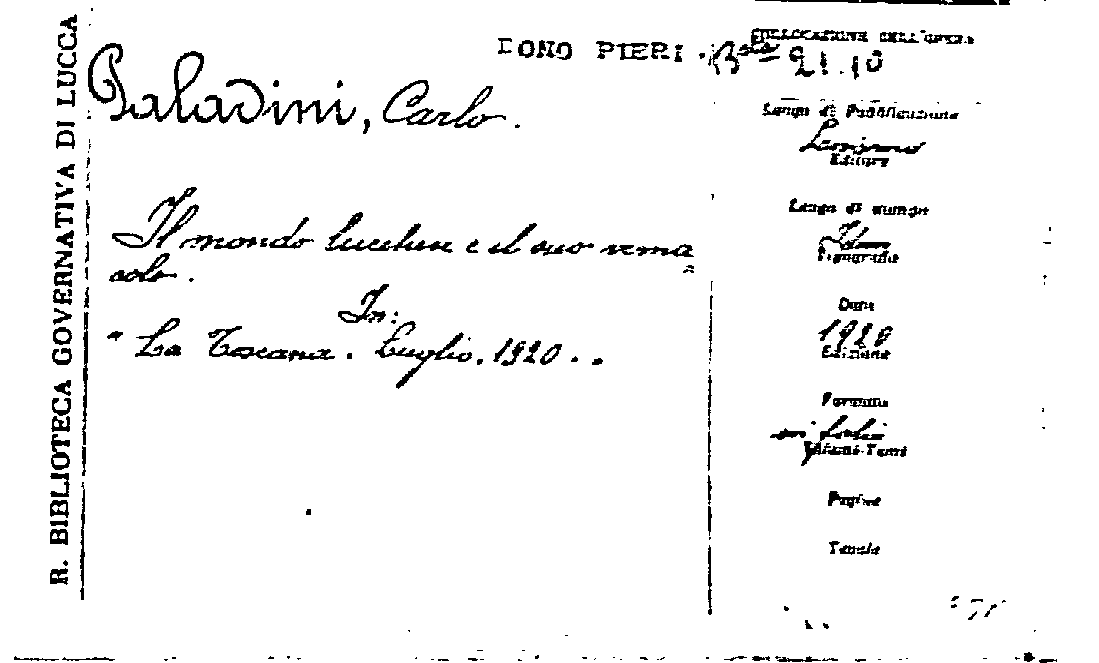 R. BIBLIOTECA GOVERNATIVA DI LUCCA
DONO PIERI. Bta 21.10
COLLOCAZIONE DELL'OPERA
Paladini, Carlo.
Il mondo lucchese e il suo verna=
colo.
In:
"La Toscana. Luglio. 1920..
Luogo di Pubblicazione
Editore
Luogo di stampa
Idem
Tipografia
Data
1920
Edizione
Formato
in folio
Volumi-Tomi
Pagine
Tavole